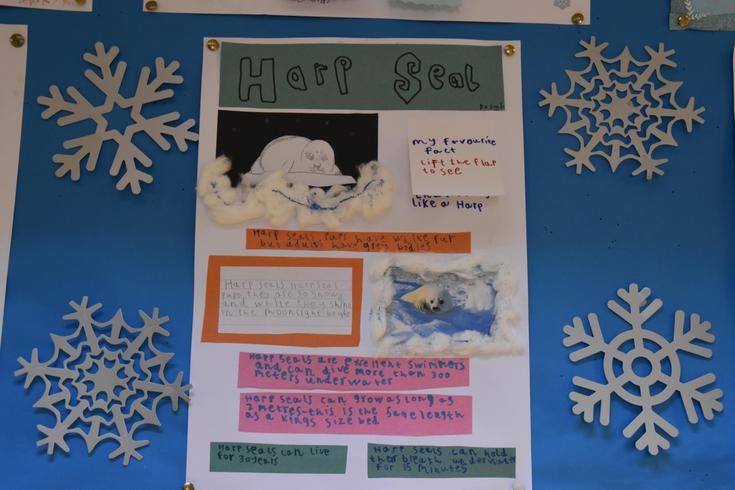 Harp Seal
my favourite
fact
Lift the flap
to see
like a Harp
Harp seals pups have white fur
but adults have grey bodies
Harp seals Harp seal
pups, they are so snowy
and white they shine
in the moonlight bright
Harp seals are excellent swimmers
and can dive more than 300
meters underwater
Harp seals can grow as long as
2 metres-this is the same length
as a kings size bed
Harp seals can live
for 30 years
Harp seals can hold
ther breath underwater
for 15 minutes